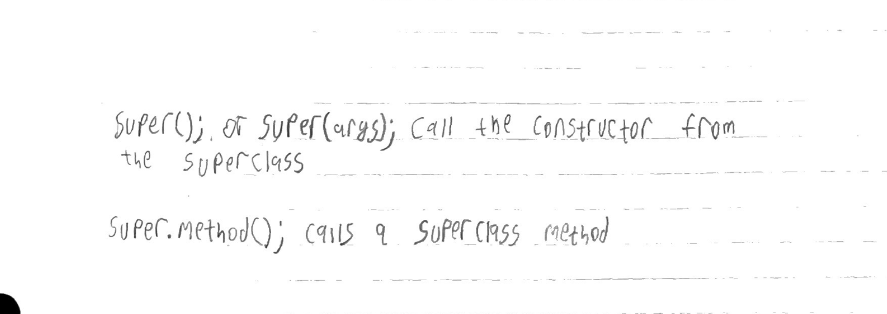 super(); or super(args); call the constructor from
the superclass
super.method(); calls a superclass method